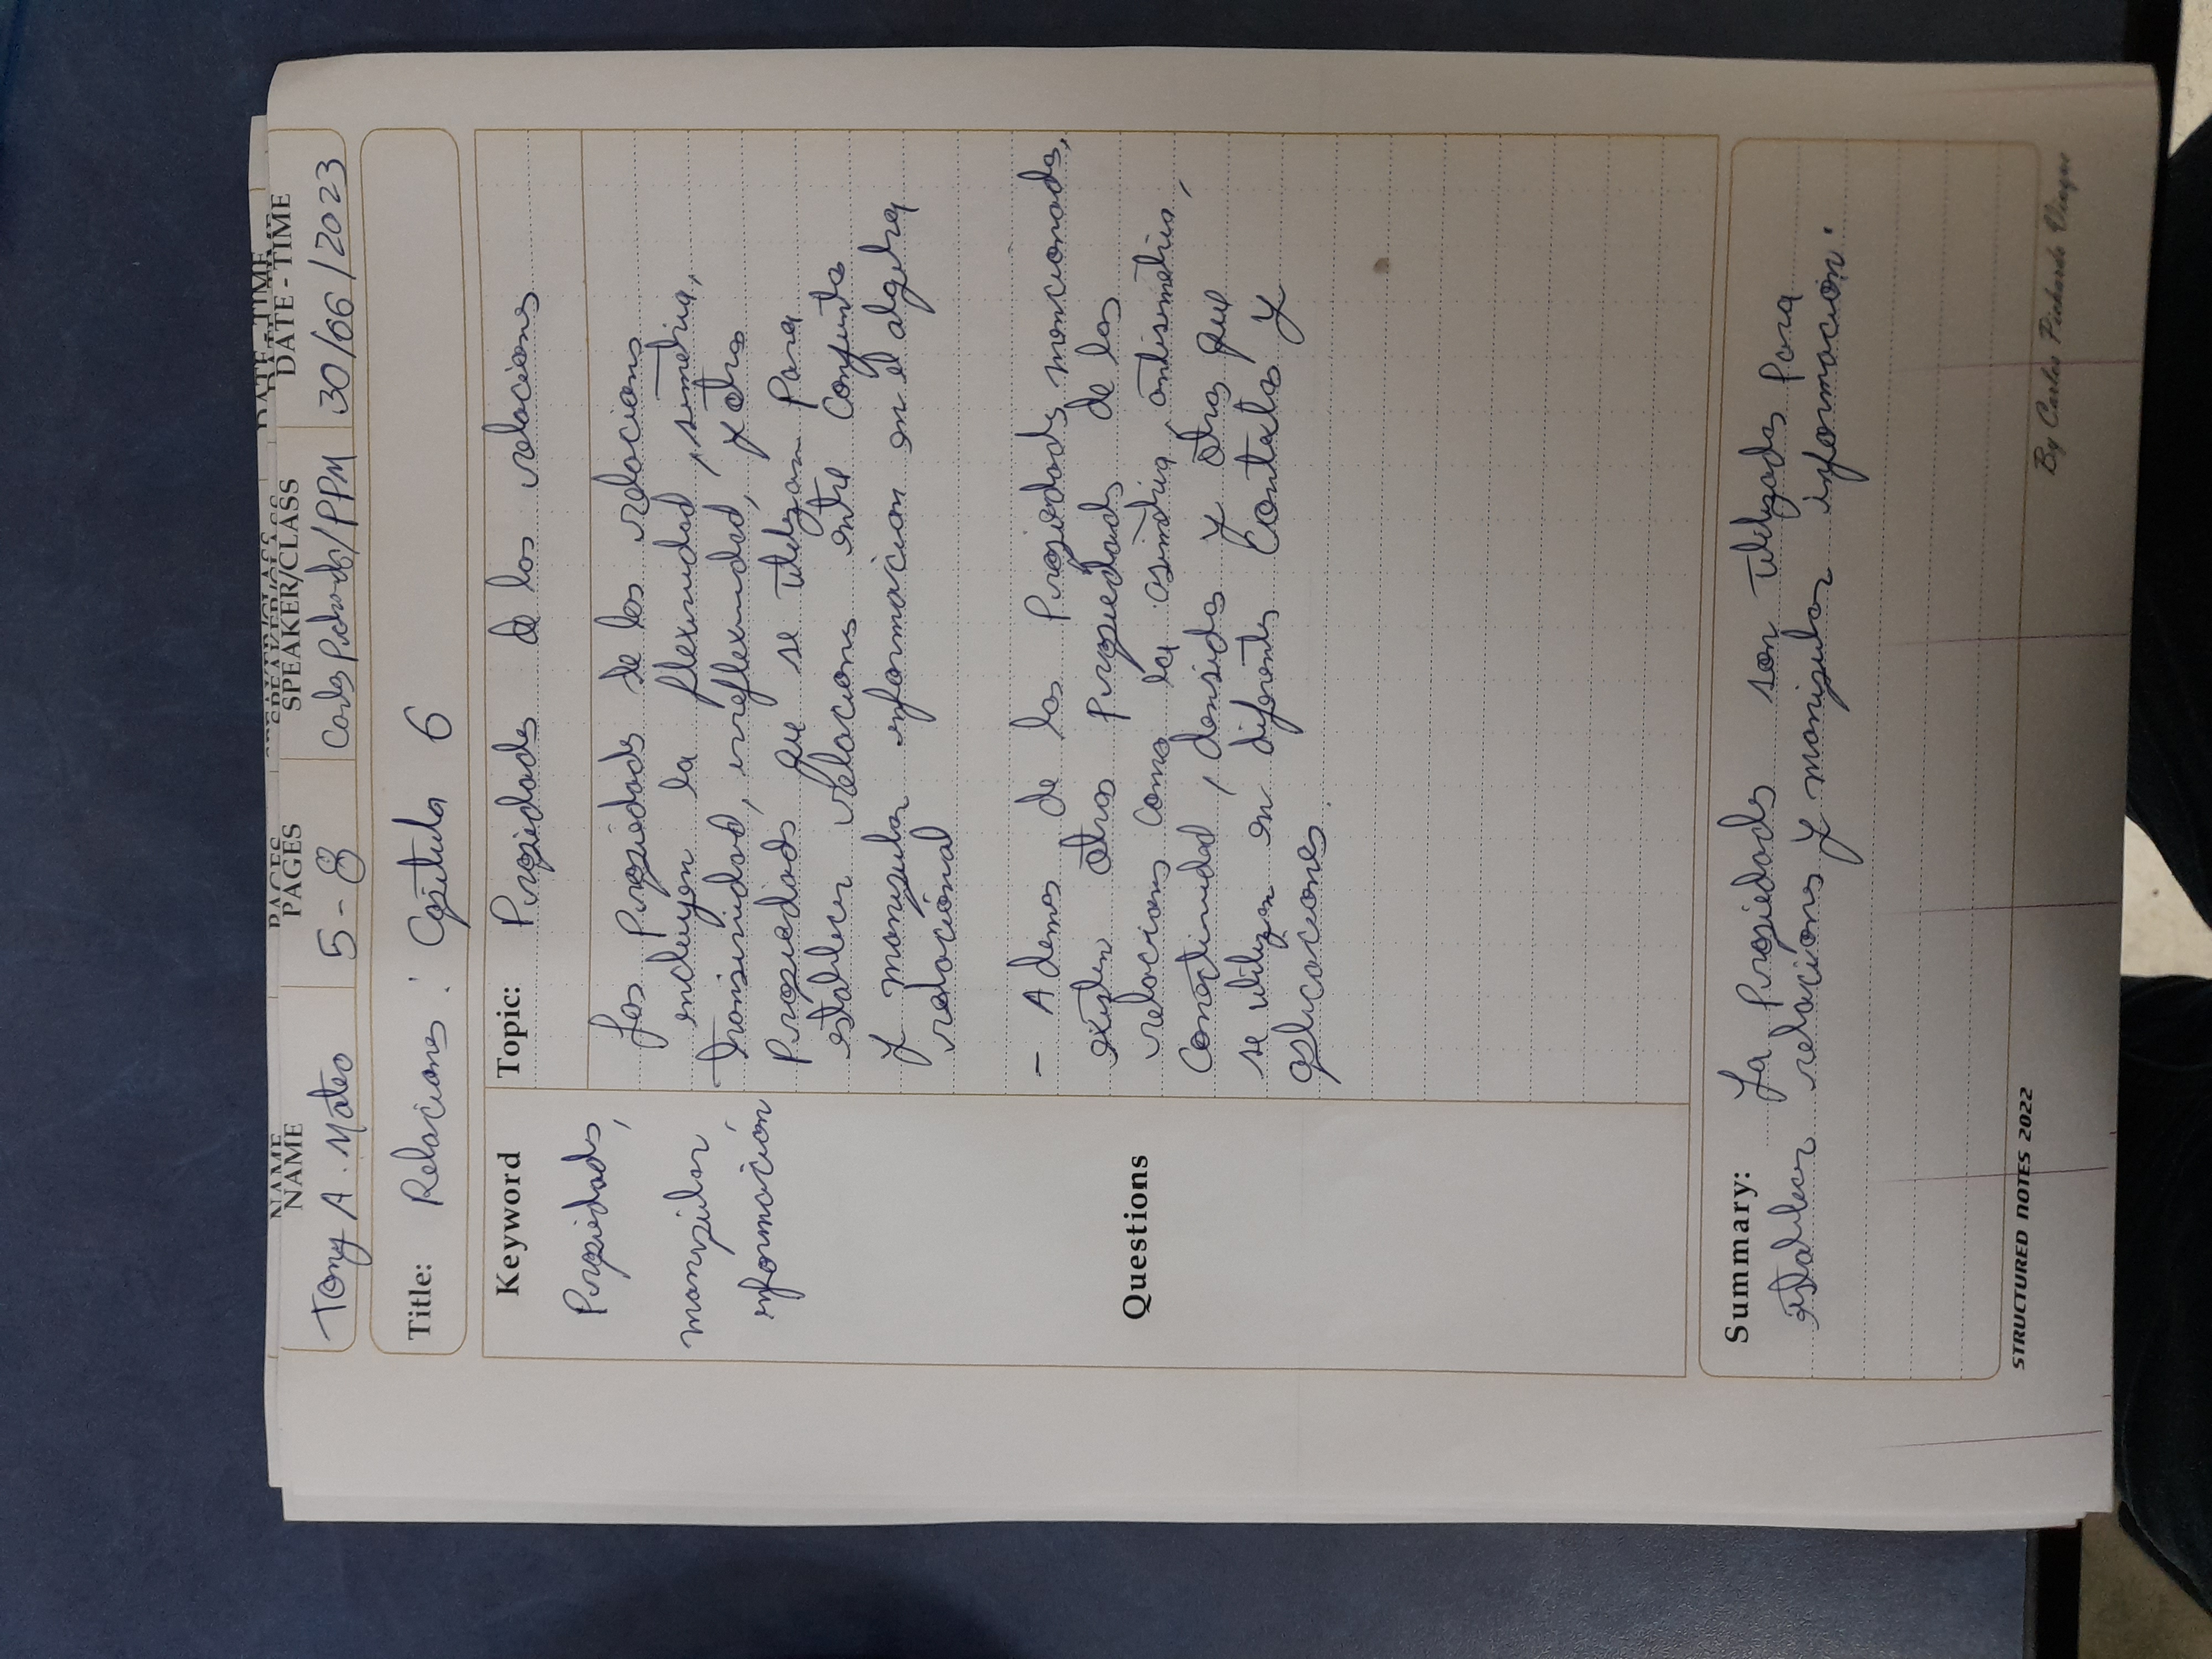 NAME PAGES SPEAKER/CLASS DATE-TIME
NAME PAGES SPEAKER/CLASS DATE-TIME
Tony A. Mateo 5-8 Carlos Pichardo/PPM 30/06/2023
Title: Relaciones: Capitulo 6
Keyword
Propiedades,
manipular,
información
Questions
Topic: Propiedades de las relaciones
Las propiedades de las relaciones
incluyen la flexividad, simetria,
transividad, irreflexividad, y otras
Propiedades que se utilizan para
establecer relaciones entre conjuntos
y manipular informacion en el algebra
relacional
- Ademas de las Propiedades mencionadas,
existen otras propiedades de las
relaciones como la asimetria, antisimetria,
Conectividad, densidas y otras que
se utilizan en diferentes contextos y
aplicaciones.
Summary: La propiedades son utilizadas para
establecer relaciones y manipular informacion.
STRUCTURED NOTES 2022
By Carlos Pichardo Viuque